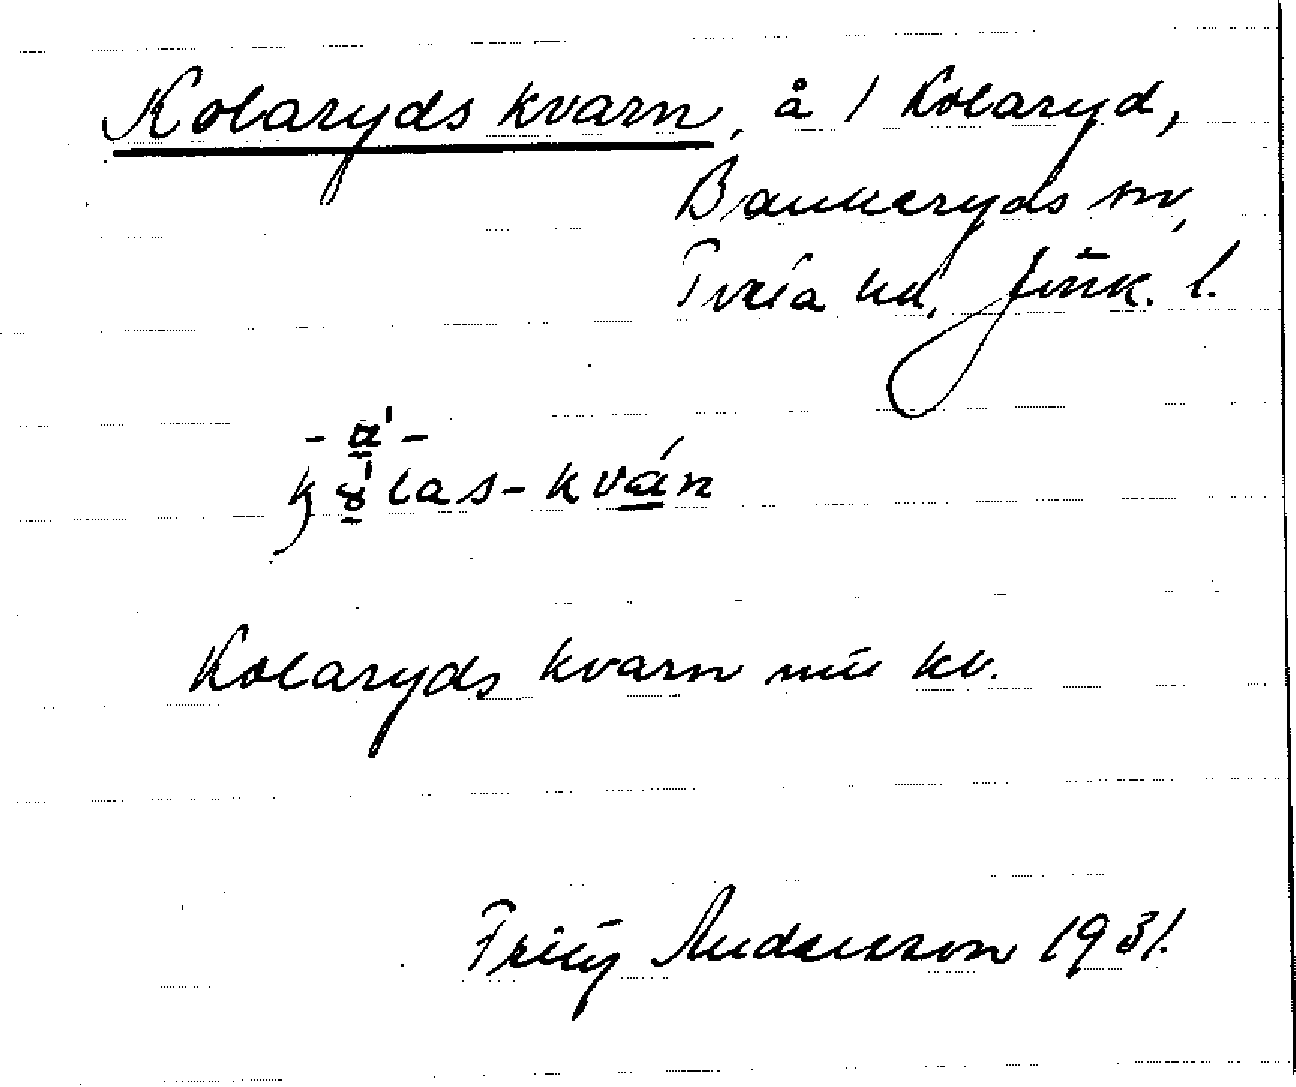 Kolaryds kvarn, å 1 Kolaryd,
Bankeryds sn,
Tveta hd, Jönk. l.
- a̲' -
las-kván
Kolaryds kvarn mű kv.
Fritz Anderson 1931.